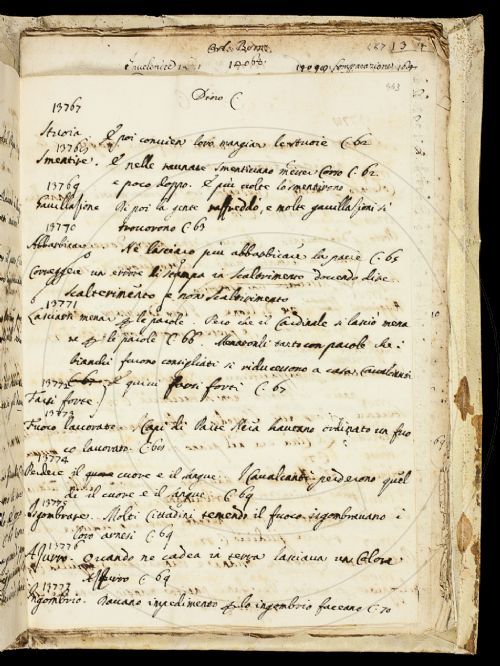 Carlo Borro.
127 1 3 4
Invelenire 14061
14062
14090. Comparazione 164
563
Dino C.
13767
Stuoia E poi convien loro mangiar le stuoie C. 62
13768
Smentire. E nelle raunate smentivano messer Corso C. 62
e poco doppo. E più volte lo smentirono.
13769
Gavillasione Di poi la gente raffreddò, e molte gavillasioni si
trovorono C. 63
13770
Abbarbicare Nè lasciaro più abbarbicare la pacie C. 65
Correggere un errore di stampa in Scalorimento dovendo dire
Scalterimento e non Scalorimento
13771
Lasciarsi menar per le parole Però che il Cardinale si lasciò mena
re per le parole C. 66 Menaronli tanto con parole che i
bianchi furono consigliati si riducessono a casa Cavalcanti
13772 C. 67 E quivi farsi forti C. 67
Farsi forte
13773
Fuoco lavorato. I Capi di Parte Neia havieno ordinato un fuo
co lavorato C. 69
13774
Perdere il cuore e il sangue. I Cavalcanti perderono quel
dì il cuore e il sangue C. 69
13775
Sgombrare. Molti Cittadini temendo il fuoco sgombravano i
loro arnesi C. 69
13776
Azurro. Quando ne cadea in terra lasciava un Colore
Azurro C. 69
13777
Ingombrio. Davano impedimento per lo ingombrio faceano C. 70